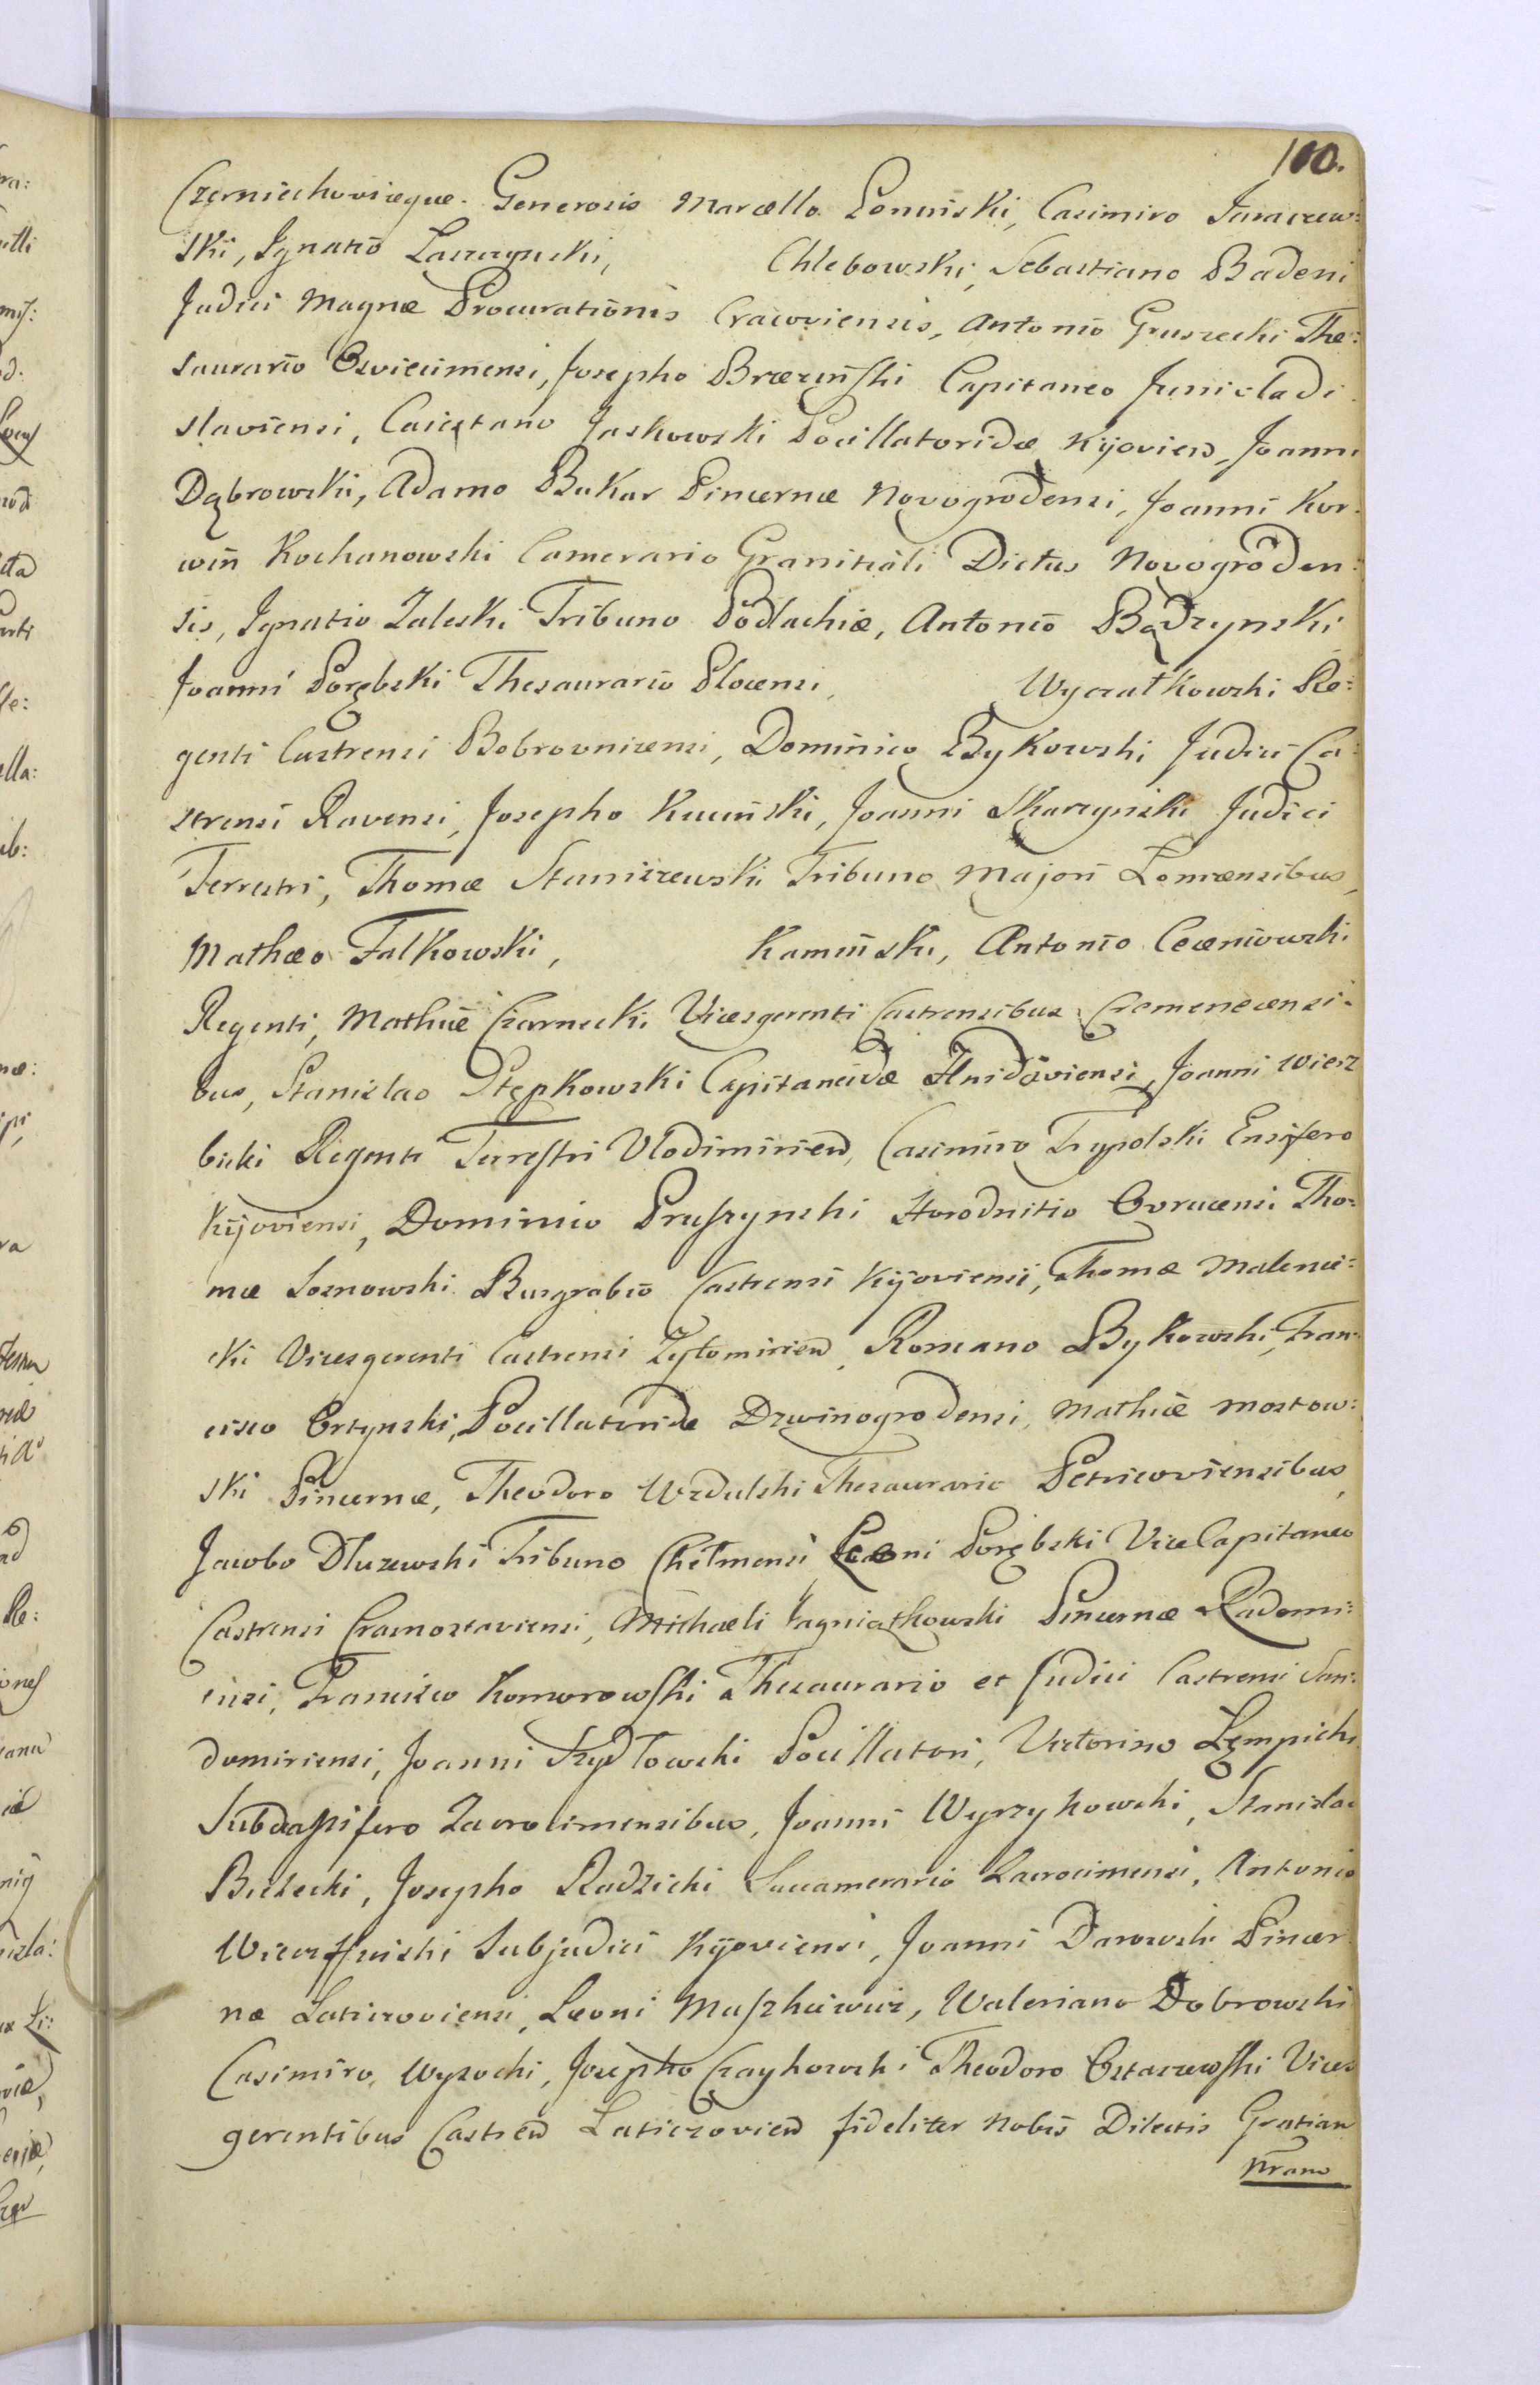 100.
Czerniechoviæque. Generosis Marcello Łoninski, Casimiro Juraczew:
ski, Ignatio Laszczynski, Chlebowski, Sebastiano Badeni
Judici Magnæ Procurationis Cracoviensis, Antonio Gruszecki The:
saurario Osviecimensi, Josepho Brzezinski Capitaneo Junivladi
slaviensi, Caietano Jaskowski Pocillatoridæ Kijovien, Joanni
Dąbrowski, Adamo Bukar Pincernæ Novogrodensi, Joanni Kor:
win Kochanowski Camerario Granitiali Dictus Novogroden:
sis, Ignatio Zaleski Tribuno Podlachiæ, Antonio Bądzynski
Joanni Porębski Thesaurario Plocensi, Wyczałkowski Re:
genti Castrensi Bobrovnicensi, Dominico Bykowski Judici Ca:
strensi Ravensi, Josepho Kucinski, Joanni Skarzynski Judici
Terrestri, Thomæ Staniszewski Tribuno Majori Lomzensibus,
Mathæo Falkowski, Kaminski, Antonio Ceceniowski
Regenti, Mathiæ Czarnecki Vicesgerenti Castrensibus Cremenecensi:
bus, Stanislao Stępkowski Capitaneidæ Hnidaviensi, Joanni Wierz
bicki Regenti Terrestri Vlodimirien, Casimiro Trypolski Ensifero
Kijoviensi, Dominico Pruszynski Horodnitio Ovrucensi Tho:
mæ Sosnowski Burgrabio Castrensi Kijoviensi, Thomæ Malenic:
cki Vicesgerenti Castrensi Zytomirien, Romano Bykowski, Fran:
cisco Ortynski, Pocillatoridæ Dzwinogrodensi, Mathiæ Mostow:
ski Pincernæ, Theodoro Wzdulski Thesaurario Petricoviensibus,
Jacobo Dłuzewski Tribuno Chełmensi, Leoni Porębski ViceCapitaneo
Castrensi Crasnostaviensi, Michaeli Jagniątkowski Pincernæ Radomi:
ensi, Francisco Komorowski Thesaurario et Judici Castrensi San:
domiriensi, Joanni Szydłowski Pocillatori, Victorino Lempicki
Subdapifero Zacrocimensibus, Joanni Wyrzykowski, Stanislao
Bielecki, Josepho Radzicki Succamerario Zacrocimensi, Antonio
Subjudici Kijoviensi, Joanni Darowski Pincer
næ Laticzoviensi, Leoni Maszkiewicz, Waleriano Dobrowski
Casimiro Wysocki, Josepho Czaykowski Theodoro Ostaszewski Vices
gerentibus Castren Laticzovien fideliter Nobis Dilectis Gratiam
Nram